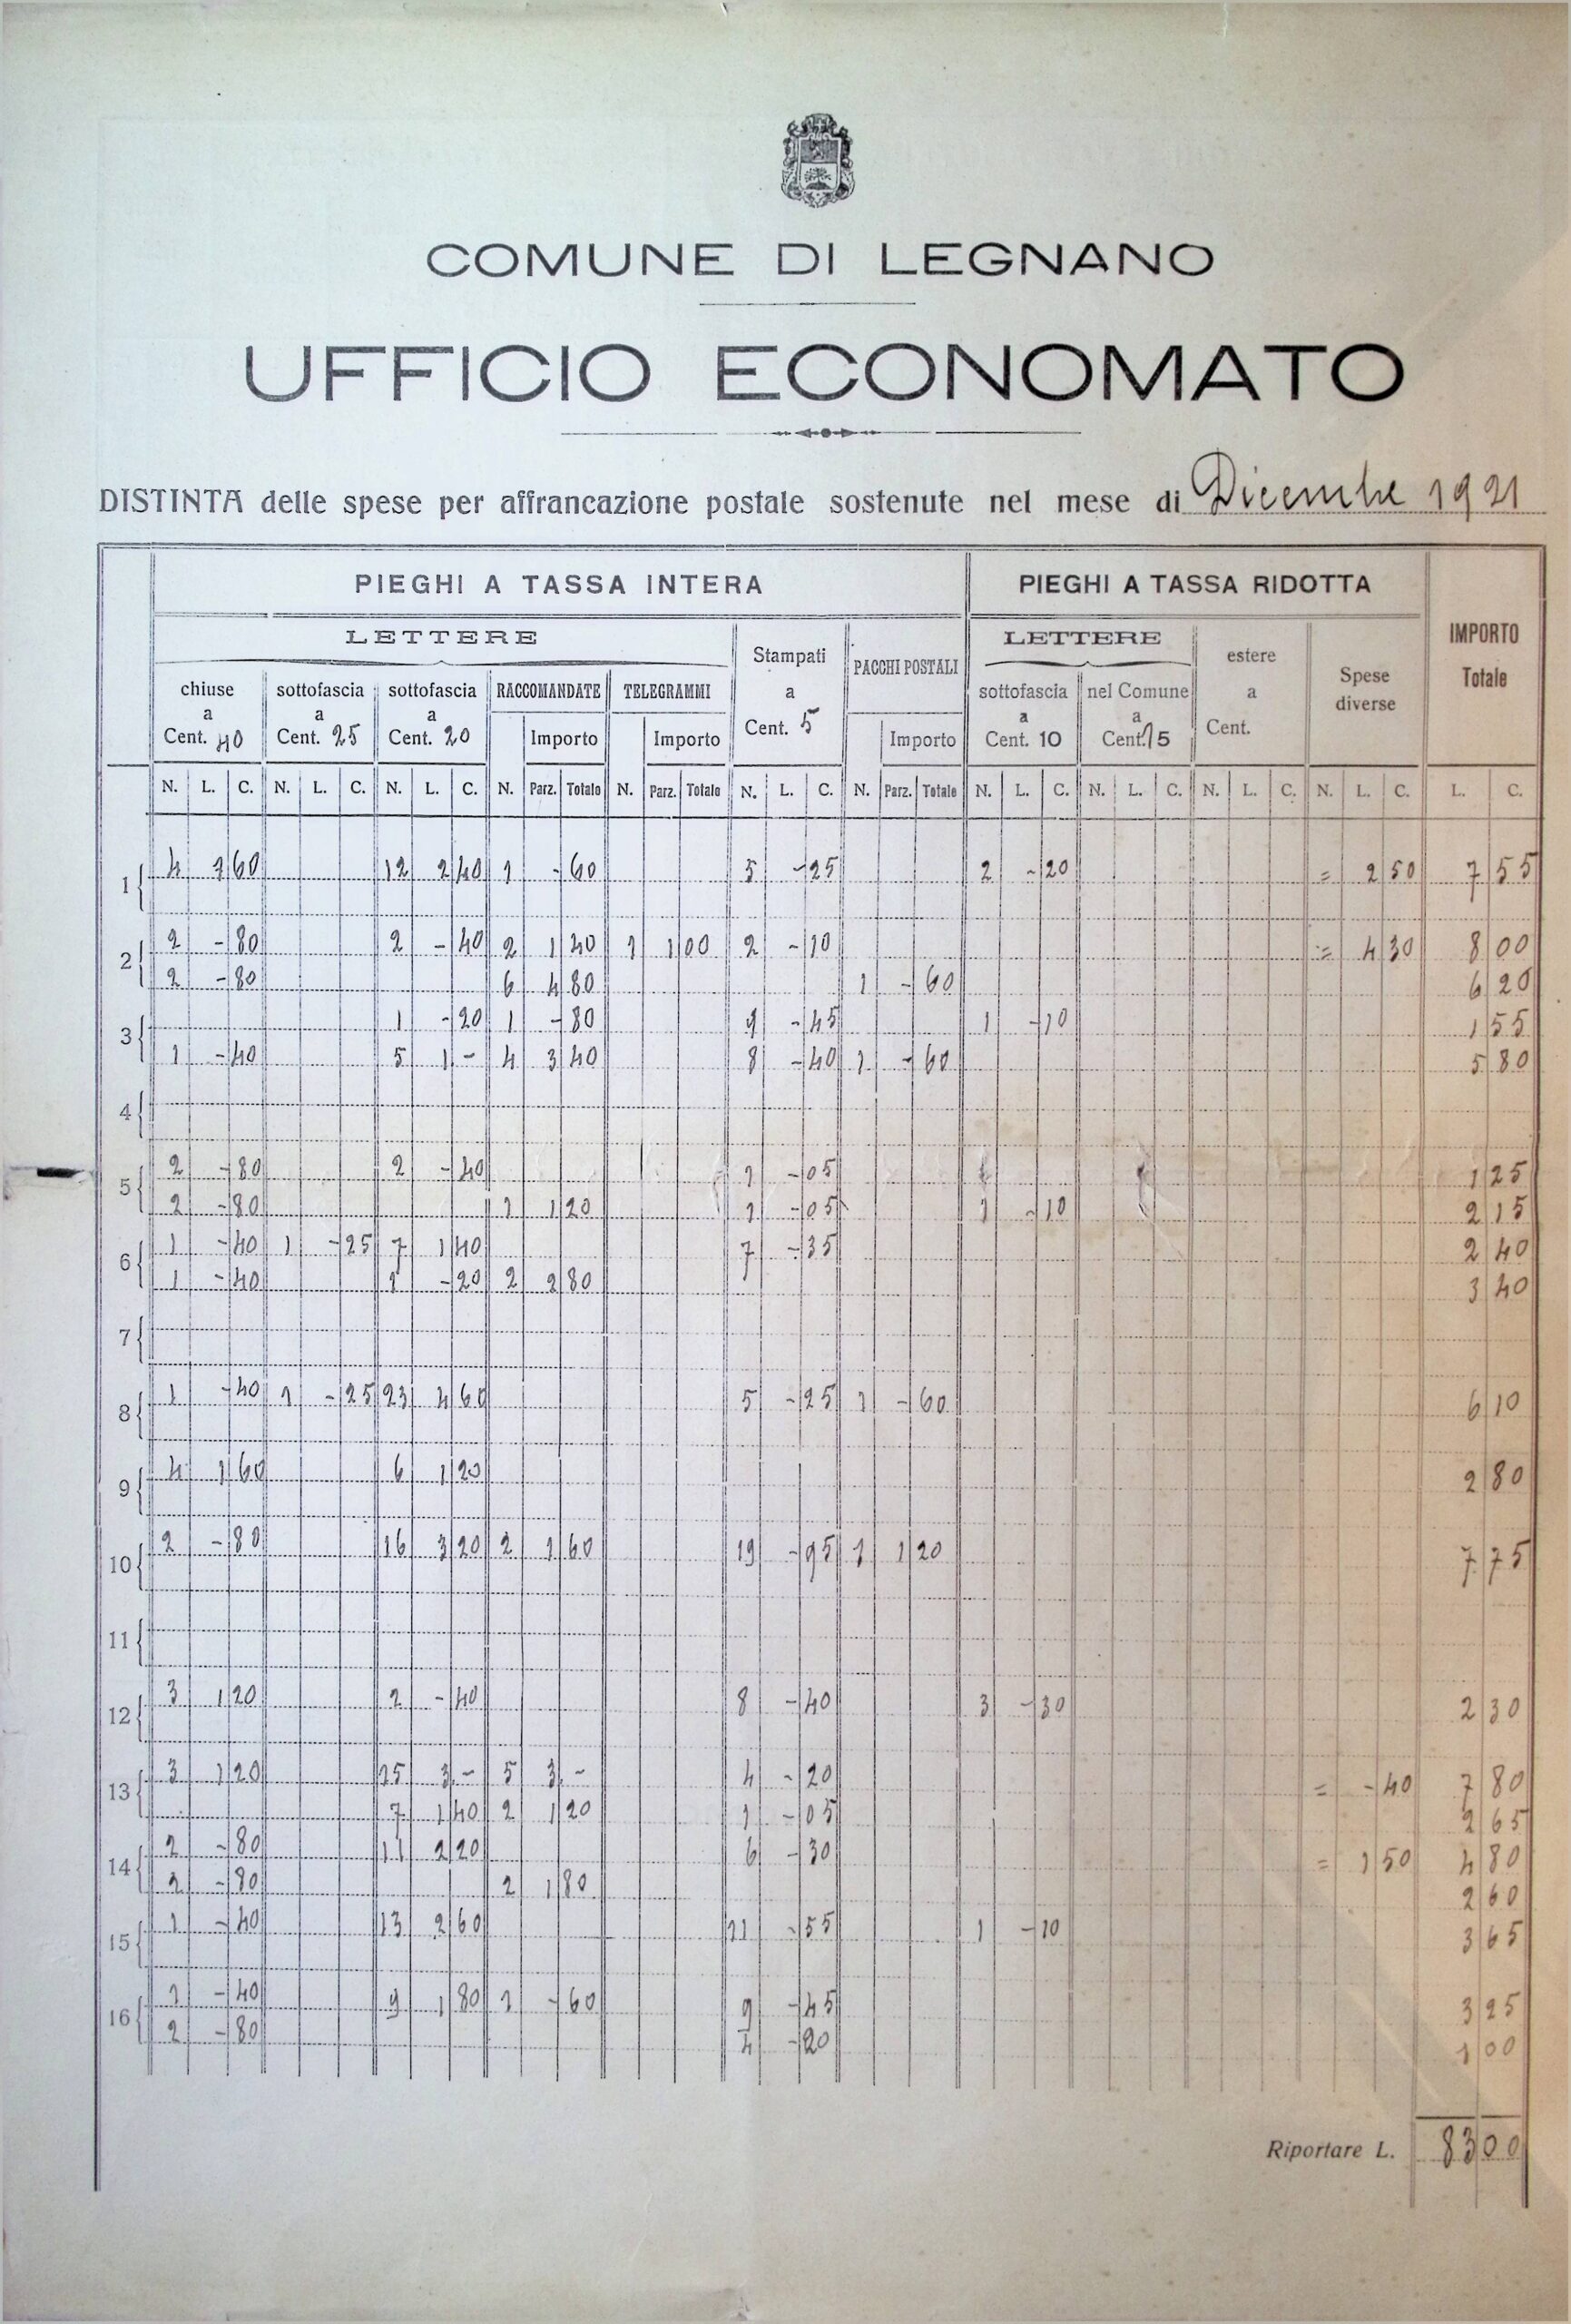 COMUNE DI LEGNANO
UFFICIO ECONOMATO
DISTINTA delle spese per affrancazione postale sostenute nel mese di Dicembre 1921
PIEGHI A TASSA INTERA PIEGHI A TASSA RIDOTTA IMPORTO Totale
LETTERE Stampati a Cent. 5 PACCHI POSTALI LETTERE estere a Cent. Spese diverse
chiuse a Cent. 40 sottofascia a Cent. 25 sottofascia a Cent. 20 RACCOMANDATE TELEGRAMMI sottofascia a Cent. 10 nel Comune a Cent. 15
Importo Importo Importo
N. L. C. N. L. C. N. L. C. N. Parz. Totale N. Parz. Totale N. L. C. N. Parz. Totale N. L. C. N. L. C. N. L. C. N. L. C. L. C.
1 4 1 60 12 2 40 1 - 60 5 - 25 2 - 20 = 2 50 7 55
2 2 - 80 2 - 40 2 1 40 1 1 00 2 - 10 = 4 30 8 00
2 - 80 6 4 80 1 - 60 6 20
3 1 - 20 1 - 80 9 - 45 1 - 10 1 55
1 - 40 5 1 - 4 3 40 8 - 40 1 - 60 5 80
4
5 2 - 80 2 - 40 1 - 05 1 25
2 - 80 1 1 20 1 - 05 1 - 10 2 15
6 1 - 40 1 - 25 7 1 40 7 - 35 2 40
1 - 40 1 - 20 2 2 80 3 40
7
8 1 - 40 1 - 25 23 4 60 5 - 25 1 - 60 6 10
9 4 1 60 6 1 20 2 80
10 2 - 80 16 3 20 2 1 60 19 - 95 1 1 20 7 75
11
12 3 1 20 2 - 40 8 - 40 3 - 30 2 30
13 3 1 20 15 3 - 5 3 - 4 - 20 = - 40 7 80
7 1 40 2 1 20 1 - 05 2 65
14 2 - 80 11 2 20 6 - 30 = 1 50 4 80
2 - 80 2 1 80 2 60
15 1 - 40 13 2 60 11 - 55 1 - 10 3 65
16 1 - 40 9 1 80 1 - 60 9 - 45 3 25
2 - 80 4 - 20 1 00
Riportare L. 83 00